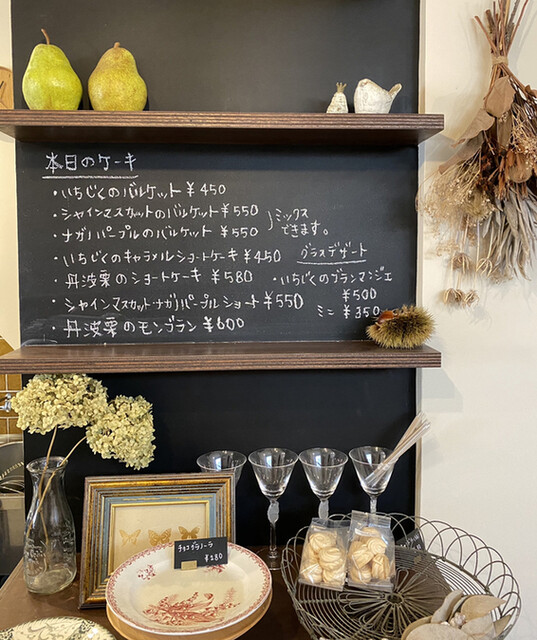 本日のケーキ
・いちじくのバルケット ¥450
・シャインマスカットのバルケット ¥550
・ナガノパープルのバルケット ¥550
ミックス
できます。
・いちじくのキャラメルショートケーキ ¥450
・丹波栗のショートケーキ ¥580
・シャインマスカット・ナガノパープルショート ¥550
・丹波栗のモンブラン ¥600
グラスデザート
・いちじくのブランマンジェ
¥500
ミニ ¥350
チョコグラノーラ
¥280